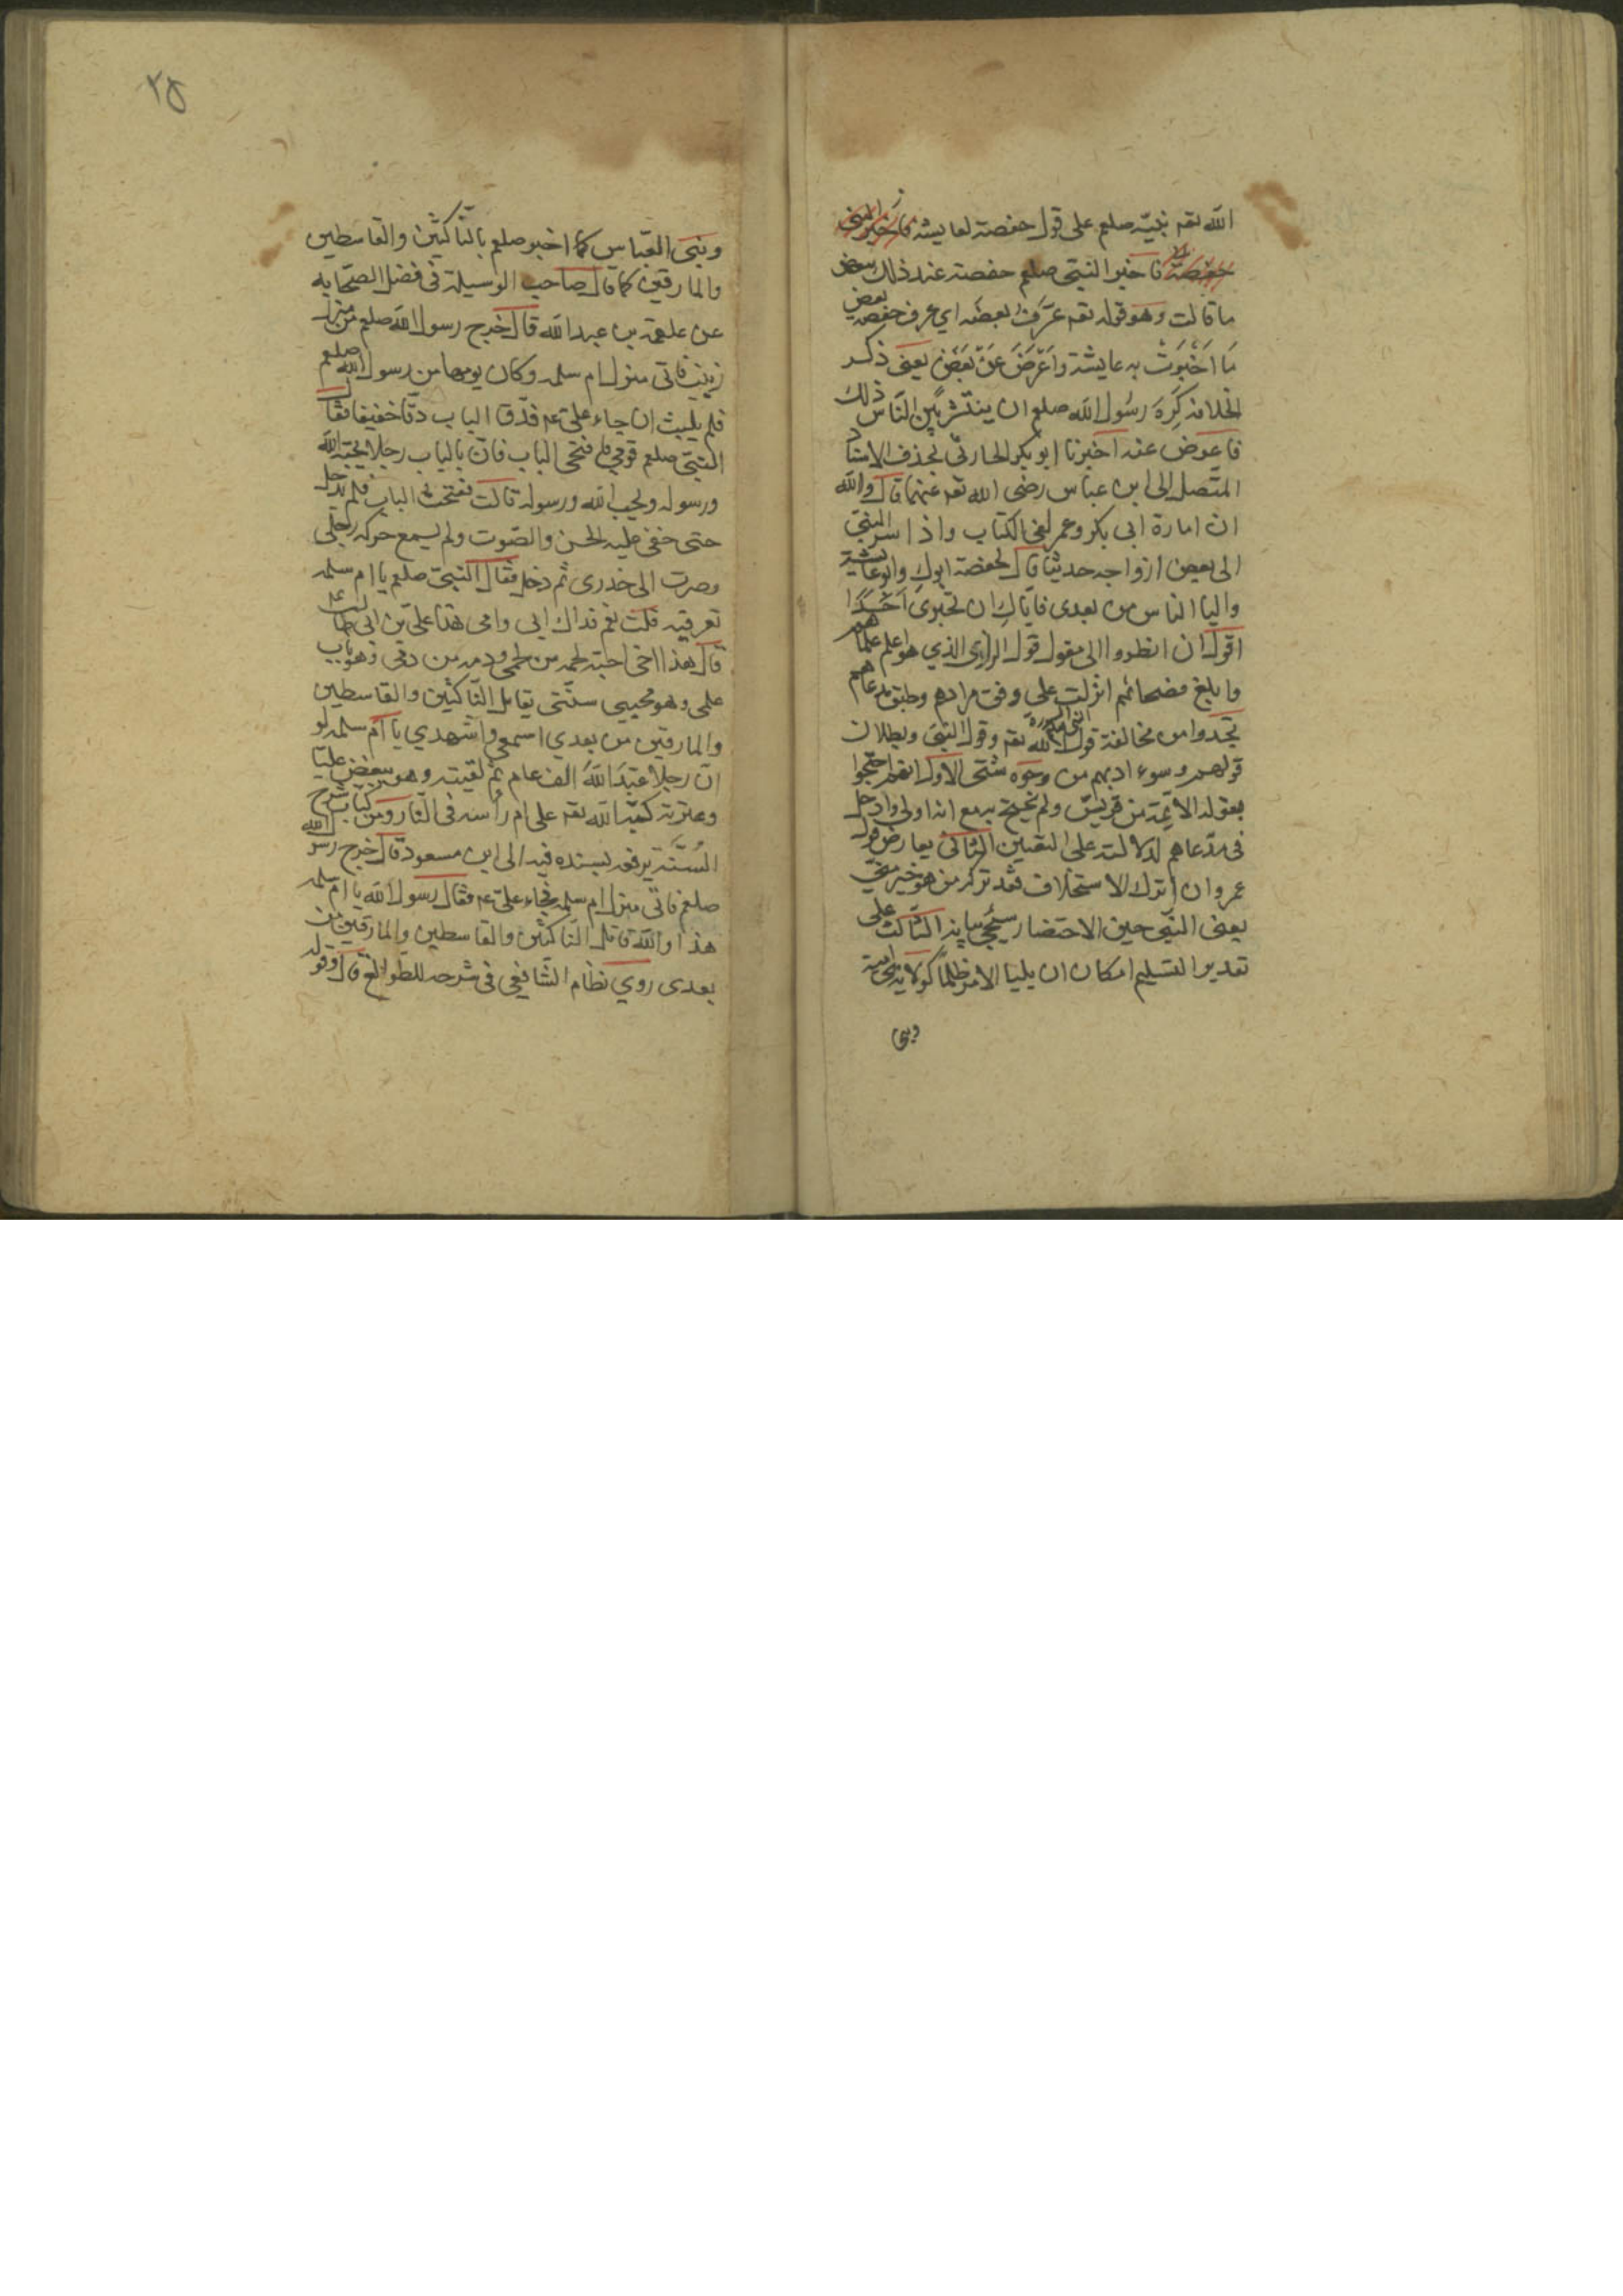 الله تعم نبيّه صلعم على قول حفصة لعايشه فاخبر النبى
حفصة فاخبر النبى صلعم حفصة عند ذلك ببعض
ما قالت وهو قوله تعم عَرَّفَ بعضَه اي عرف حفصه بعض
مَا اَخْبَرَتْ به عايشة واَعْرَضَ عَنْ بَعْضٍ يعنى ذكر
الخلافه كَرِهَ رسُول الله صلعم ان ينتشر بَين النّاس ذلك
فاعرض عنه اخبرنا ابو بكر الحارثى بحذف الاسناد
المتّصل الى ابن عباس رضى الله تعم عنهما قال والله
ان امارة ابى بكر وعمر لفى الكتاب واذ اسر النبىّ
الى بعض ازواجه حديثا قال لحفصة ابوكِ وابو عايشة
واليا الناس من بعدى فايّاكِ ان تخبرى اَحَدًا
اقول ان انظروا الى مقول قول الرازى الذي هو اعلم علمائهم
وابلغ فصحائهم انزلت على وفق مرادهم وطبق مدعاهم
تجدوا من مخالفة قول الله تعم وقول النبىّ وبطلان
قولهم وسوء ادبهم من وجوه شتّى الاول انهم احتجوا
بقوله الائمة من قريش ولم يحتج به مع انه اولى وادخل
فى مدّعاهم لدلالته على التعيين الثانى يعارض قول
عمر وان اترك الاستخلاف فقد ترك من هو خير منّى
يعنى النّبى حين الاحتضار سيجئ بيانه الثالث على
تقدير التسليم امكان ان يليا الامر ظلمًا كولاية بنى امية
وبنى
٣٥
وبنى العبّاس كما اخبر صلعم بالنّاكثين والقاسطين
والمارقين كما قال صاحب الوسيلة فى فضل الصّحابه
عن علقمه بن عبد الله قال خرج رسول الله صلعم من منزل
زينب فاتى منزل ام سلمه وكان يومها من رسول الله صلعم
فلم يلبث ان جاء علىّ عم فدّق الباب دقّا خفيفا فقال
النبىّ صلعم قومى فافتحى الباب فانّ بالباب رجلا يحبّه الله
ورسوله ويحب الله ورسوله قالت ففتحت الباب فلم يدخل
حتى خفى عليه الحسّ والصّوت ولم يسمع حركه رجلى
وصرت الى خدرى ثم دخل فقال النبىّ صلعم يا ام سلمه
تعرفيه قلت نعم فداك ابى وامى هذا علىّ بن ابى طالب عم
قال هذا اخى لحمه من لحمى ودمه من دمى وهو باب
علمى وهو محيى سنّتى يقاتل النّاكثين والقاسطين
والمارقين من بعدي اسمعى واشهدي يا امّ سلمه لو
انّ رجلا عَبَدَ اللهَ الف عام ثم لقيته وهو يبغض عليّا
وعترته كبّه الله تعم على ام رأسه فى النّار ومن كتاب شرح
السُّنّة يرفعه بسنده فيه الى ابن مسعود قال خرج رسول الله
صلعم فاتى منزل ام سلمه فجاء علىّ عم فقال رسول الله يا امّ سلمه
هذا والله قاتل النّاكثين والقاسطين والمارقين من
بعدى روي نظام الشّافعى فى شرحه للطوالع قال وقوله